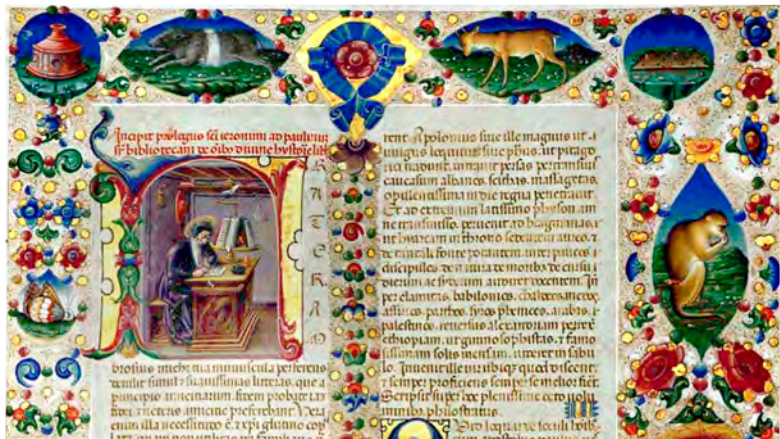 Incipit prologus sci ieronimi ad paulinum
RATER AM
brosius michi tua munuscula perferens
detulit simul et suauissimas litteras, que a
principio amicitiarum, fidem probate iam
fidei et ueteris amicitie preferebant. Vera
enim illa necessitudo e. et xpi glutino cop
rent. Apolonius siue ille magus ut
uulgus loquitur siue phus, ut pitago
rici tradunt, intrauit persas pertransiuit
caucasum albanos, scithas, massagetas,
opulentissima indie regna penetrauit.
Et ad extremum latissimo physon am
ne transmisso. peruenit ad bragmanas,
ut hyarcam in throno sedentem aureo. et
de tantali fonte potantem. inter paucos
discipulos. de natura de moribus de cursu
dierum ac siderum audiret docentem.
per elamitas, babilonios, chaldeos medos
assirios. parthos. syros phenices. arabas.
palestinos. reuersus alexandriam perrexit
ethiopiam. ut gimnosophistas. et famo
sissimam solis mensam. uideret in sabu
lo. Inuenit ille uir ubique quod disceret.
et semper proficiens semper se melior fieret.
Scripsit super hoc plenissime octo uolu
minibus philostratus.